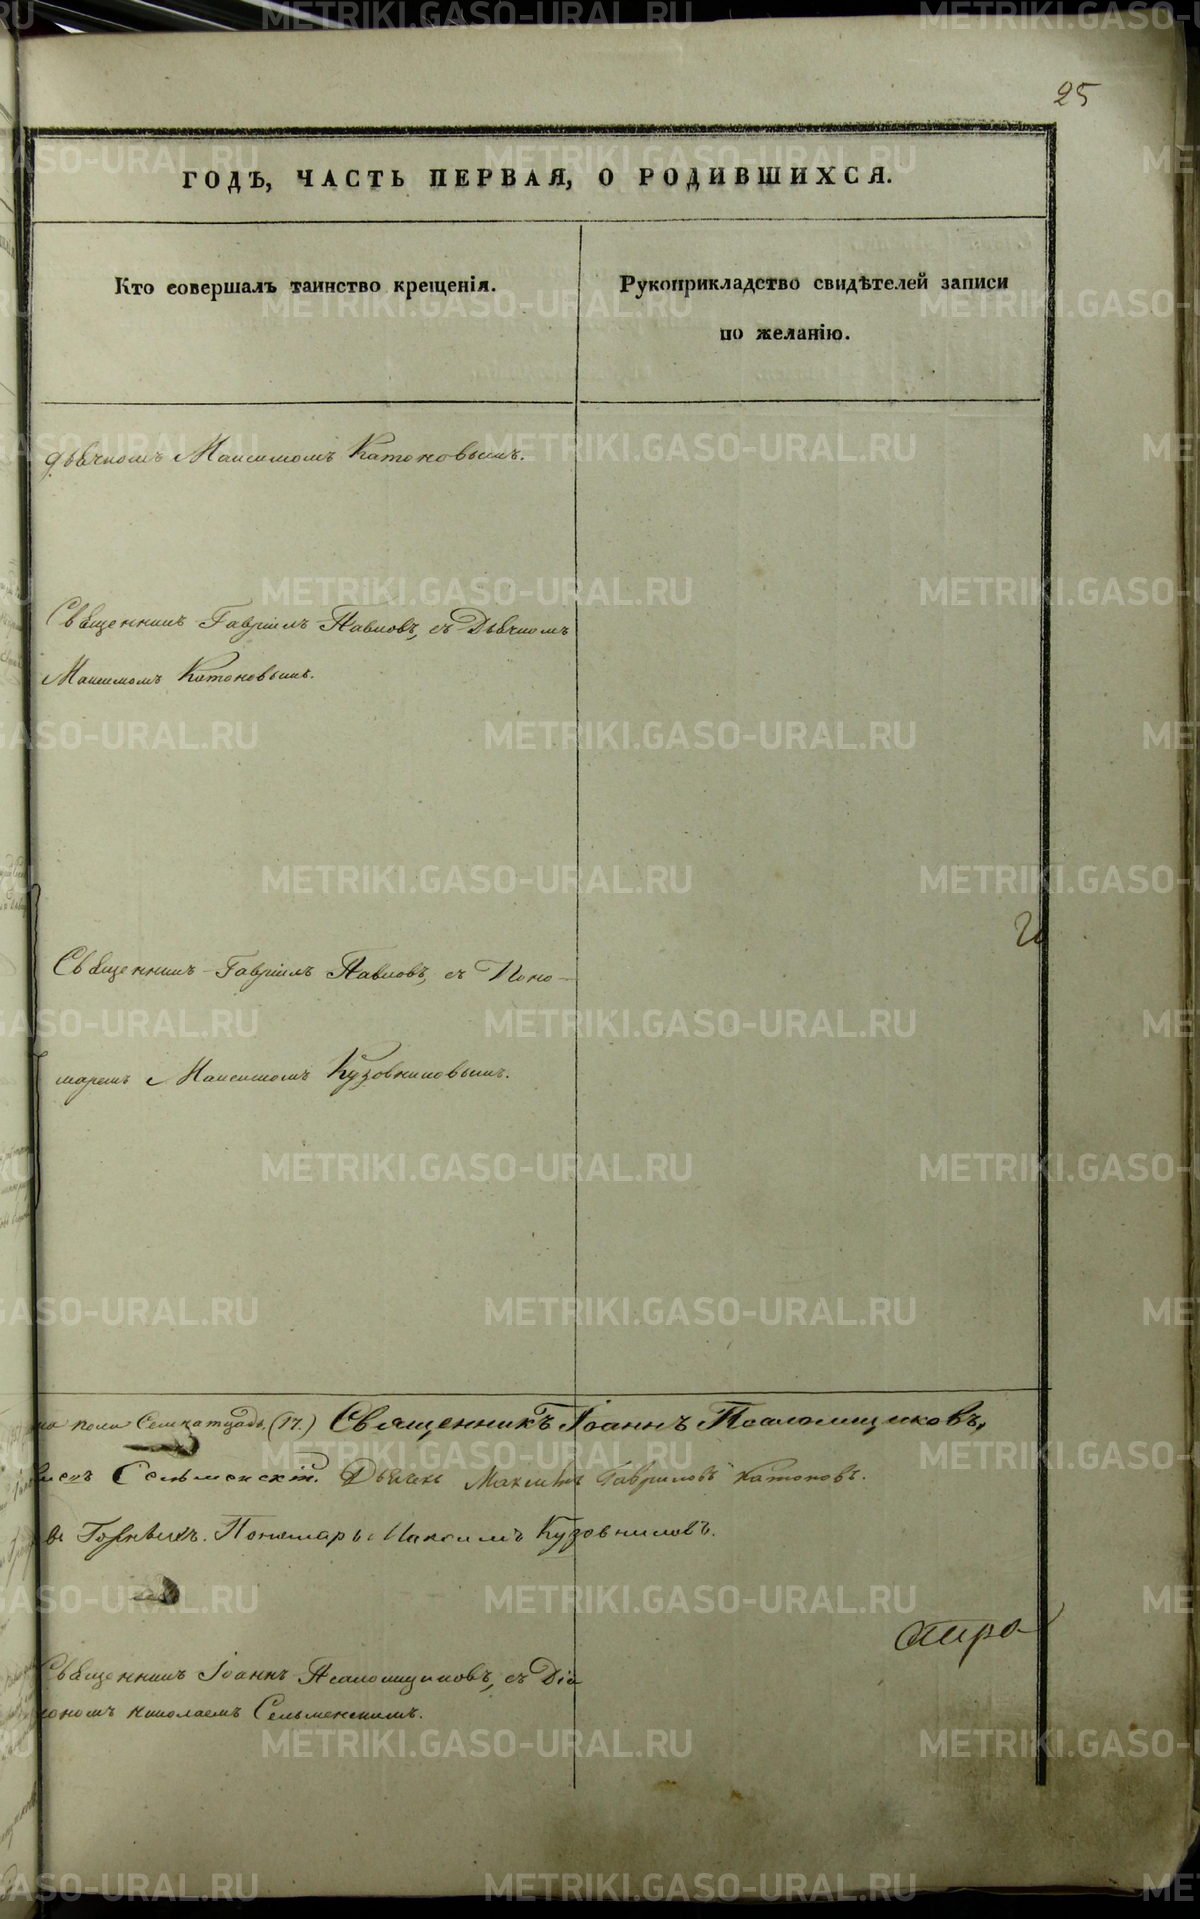 25
ГОДЪ, ЧАСТЬ ПЕРВАЯ, О РОДИВШИХСЯ.
Кто совершалъ таинство крещенія.
Рукоприкладство свидѣтелей записи
по желанію.
дьячкомъ Максимомъ Катоковымъ.
Священникъ Гавріилъ Павловъ, съ Дьячкомъ
Максимомъ Катоковымъ.
Священникъ Гавріилъ Павловъ, съ Поно-
маремъ Максимомъ Кузовниковымъ.
пола Семнатцадь (17.) Священникъ Іоаннъ Псаломщиковъ,
Сельменскій. Дьячекъ Максимъ Гавриловъ Катоковъ.
Пономарь Максимъ Кузовниковъ.
Священникъ Іоаннъ Псаломщиковъ, съ Діа
кономъ Николаемъ Сельменскимъ.
METRIKI.GASO-URAL.RU